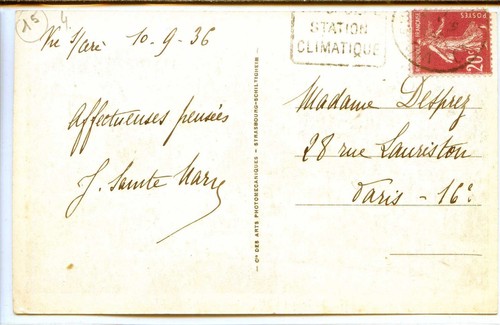 15
4.
10-9-36
STATION
CLIMATIQUE
POSTES
20c
Affectueuses pensées
J. Sainte Marie
Madame Desprez
28 rue Lauriston
Paris - 16e
Cie DES ARTS PHOTOMECANIQUES - STRASBOURG-SCHILTIGHEIM -